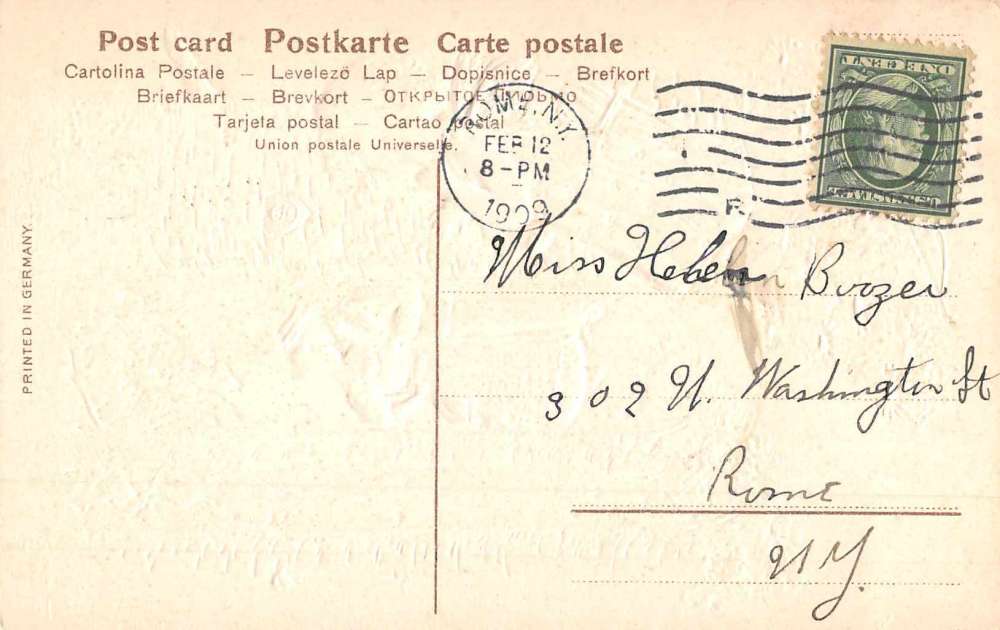 Post card Postkarte Carte postale
Cartolina Postale – Levelező Lap – Dopisnice – Brefkort
Briefkaart – Brevkort – Открытое письмо
Tarjeta postal – Cartao postal
Union postale Universelle.
ROME, N.Y.
FEB 12
8-PM
1909
PRINTED IN GERMANY.
Miss Helen Boozer
302 N. Washington St
Rome
N.Y.